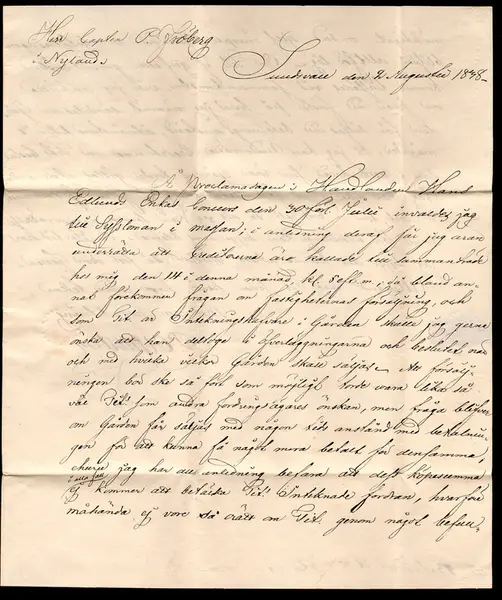 Herr Capten P. Fröberg
i Nyland
Sundsvall den 2 Augusti 1848
På Proclamadagen i Handlanden Hans
Edlunds Enkas Concurs den 30 förl. Juli invaldes jag
till Syssloman i massan; i anledning deraf får jag äran
underrätta att Creditorerne äro kallade till sammanträde
hos mig den 14 i denna månad, kl. 5 eft.m., då bland an-
nat förekommer frågan om fastighetens försäljning, och
som Tit är Inteckningshafvare i Gården skulle jag gerna
önska att han deltoge i öfverläggningarna och beslutet när
och med hvilka vilkor Gården skall säljas. Att försälj-
ningen bör ske så fort som möjligt torde vara lika så
väl Tit! som andra fordringsägares önskan, men fråga blifver
om Gården får säljas med någon tids anstånd med betalnin-
gen för att kunna få något mera betalt för densamma,
churu jag har all anledning befara att dess köpesumma
i alla fall
ej kommer att betäcka Tit! Intecknade fordran, hvarföre
måhända ej vore så orätt om Tit. genom något befull-